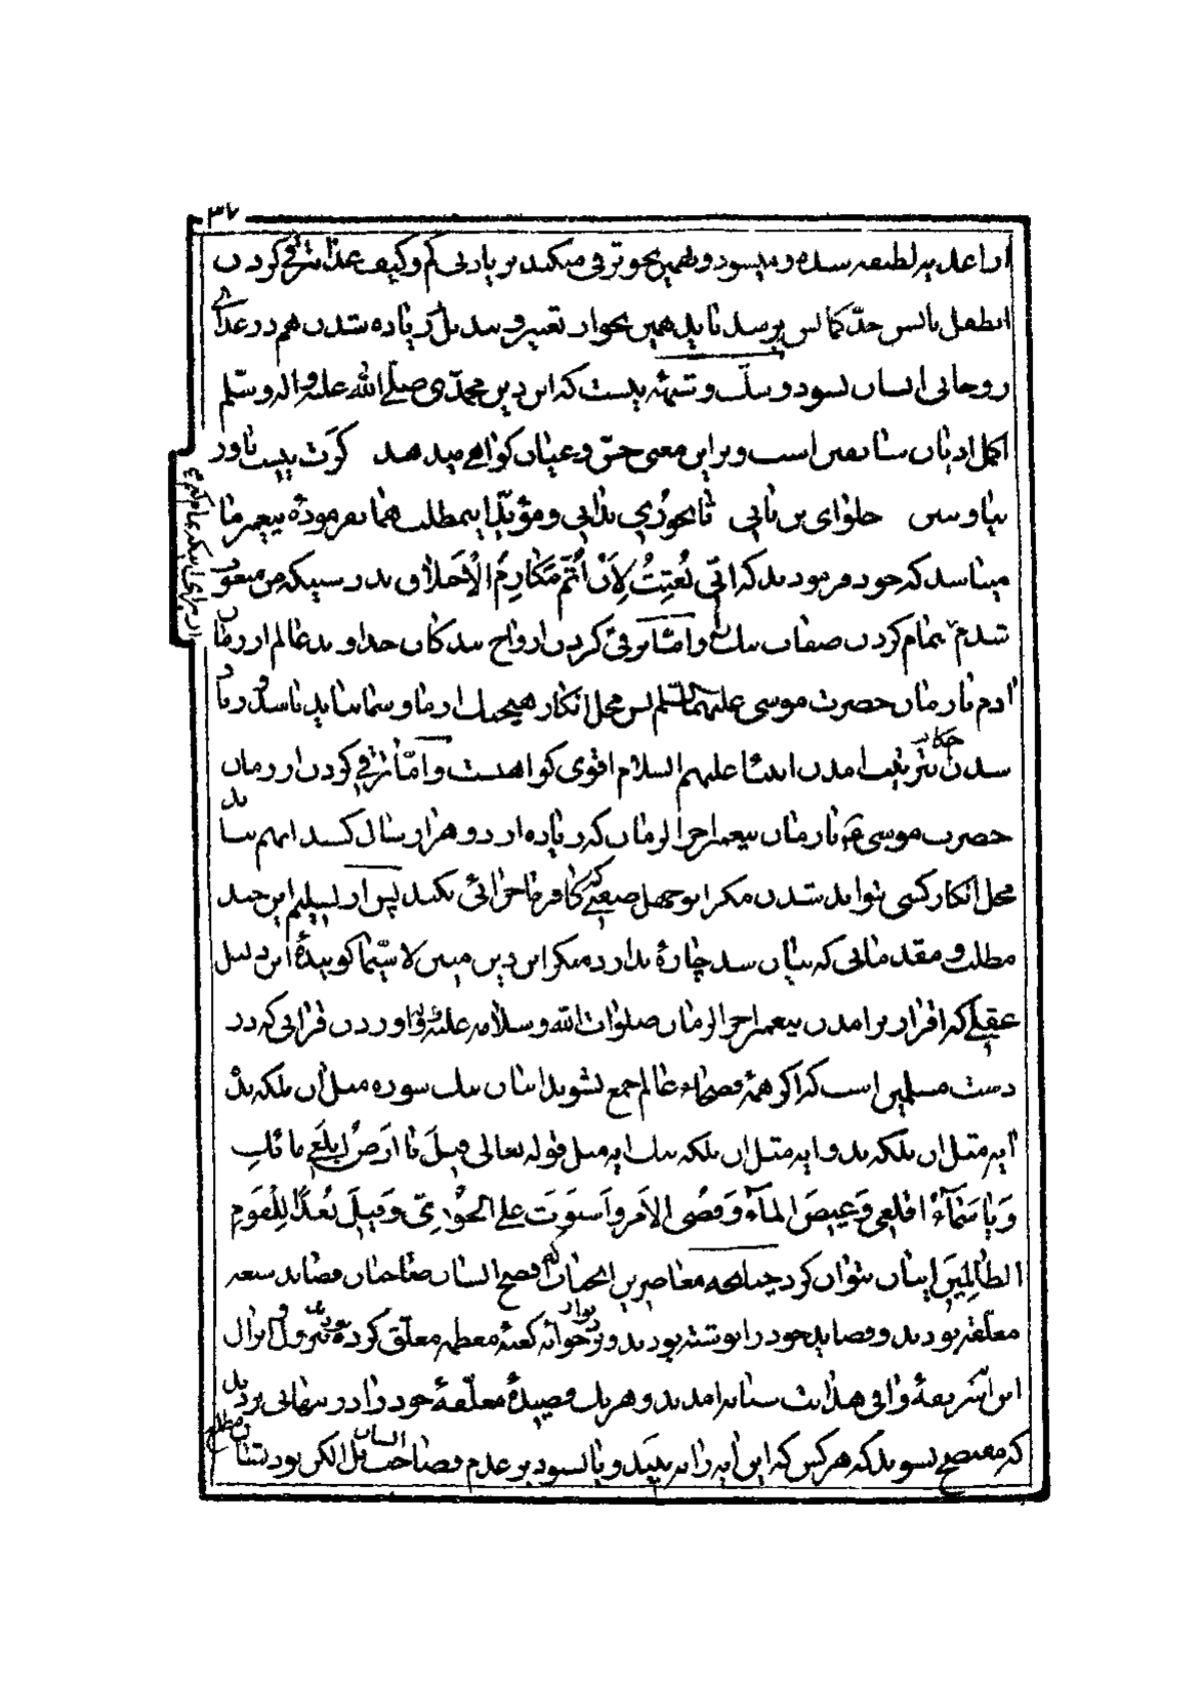 ۳۷
اغذیه لطیفه شده و میشود و همین نحو ترقی میکند بزیادتی کم و کیف غذا ترقی کردن
طفل تا بسن حد کمالش برسد باید همین نحو از تغییر و تبدیل و زیاده شدن هم در غذای
روحانی انسان بشود و شک و شبهه نیست که این دین محمدی صلی الله علیه واله وسلم
اکمل ادیان سابقین است و براین معنی حس و عیان کواهی میدهد کرت نیست باور
بیا و ببین حلوای بن تانی تا نخوری ندانی و مؤید اینمطلب همان فرموده پیغمبر ما
میباشد که خود فرمودند که انی بعثت لاتمم مکارم الاخلاق بدرستیکه من مبعوث
شدم بتمام کردن صفات نیک و اما ترقی کردن ارواح بندکان خداوند عالم از زمان
ادم تا زمان حضرت موسی علیهما السلم پس محل انکار هیچیک از ما و شما نباید باشد و زیاد
شدن بترتیب امدن انبیا علیهم السلام اقوی کواهست و اما ترقی کردن از زمان
حضرت موسی تا زمان پیغمبر اخر الزمان که زیاده از دو هزار سال کشید انهم نباید
محل انکار کسی تواند شدن مکر ابوجهل صفتی کافر ماجرائی بکند پس از تسلیم این چند
مطلب و مقدماتی که بیان شد چارهٔ ندارد منکر این دین مبین لا سیما کویندهٔ این دلیل
عقلی که اقرار بر امدن پیغمبر اخر الزمان صلوات الله وسلامه علیه و اوردن قرانی که در
دست مسلمین است که اکر همهٔ فصحاء عالم جمع بشوند اتیان یک سوره مثل ان بلکه بده
ایه مثل ان بلکه بدو ایه مثل ان بلکه یک ایه مثل قوله تعالی وقیل یا ارض ابلعی مائک
ویا سماء اقلعی وغیض الماء وقضی الامر واستوت علی الجودی وقیل بعدا للقوم
الظالمین اتیان نتوان کرد چنانچه معاصرین انجناب که افصح السان صاحبان قصاید سبعه
معلقه بودند و قصاید خود را نوشته بودند و بر دیوار خانه کعبه معظمه معلق کرده بودند و نزول
این ایهٔ شریفهٔ وافی هدایت شبانه امدند و هریک قصیدهٔ معلقهٔ خود را در پنهانی بردند
که مفتضح نشوند که هر کس که این ایه را به بیند و یا بشنود بر عدم فصاحت بل الکن بودن